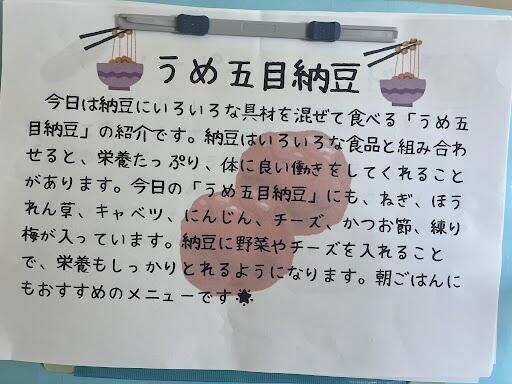 うめ五目納豆
今日は納豆にいろいろな具材を混ぜて食べる「うめ五
目納豆」の紹介です。納豆はいろいろな食品と組み合わ
せると、栄養たっぷり、体に良い働きをしてくれること
があります。今日の「うめ五目納豆」にも、ねぎ、ほう
れん草、キャベツ、にんじん、チーズ、かつお節、練り
梅が入っています。納豆に野菜やチーズを入れること
で、栄養もしっかりとれるようになります。朝ごはんに
もおすすめのメニューです🌟